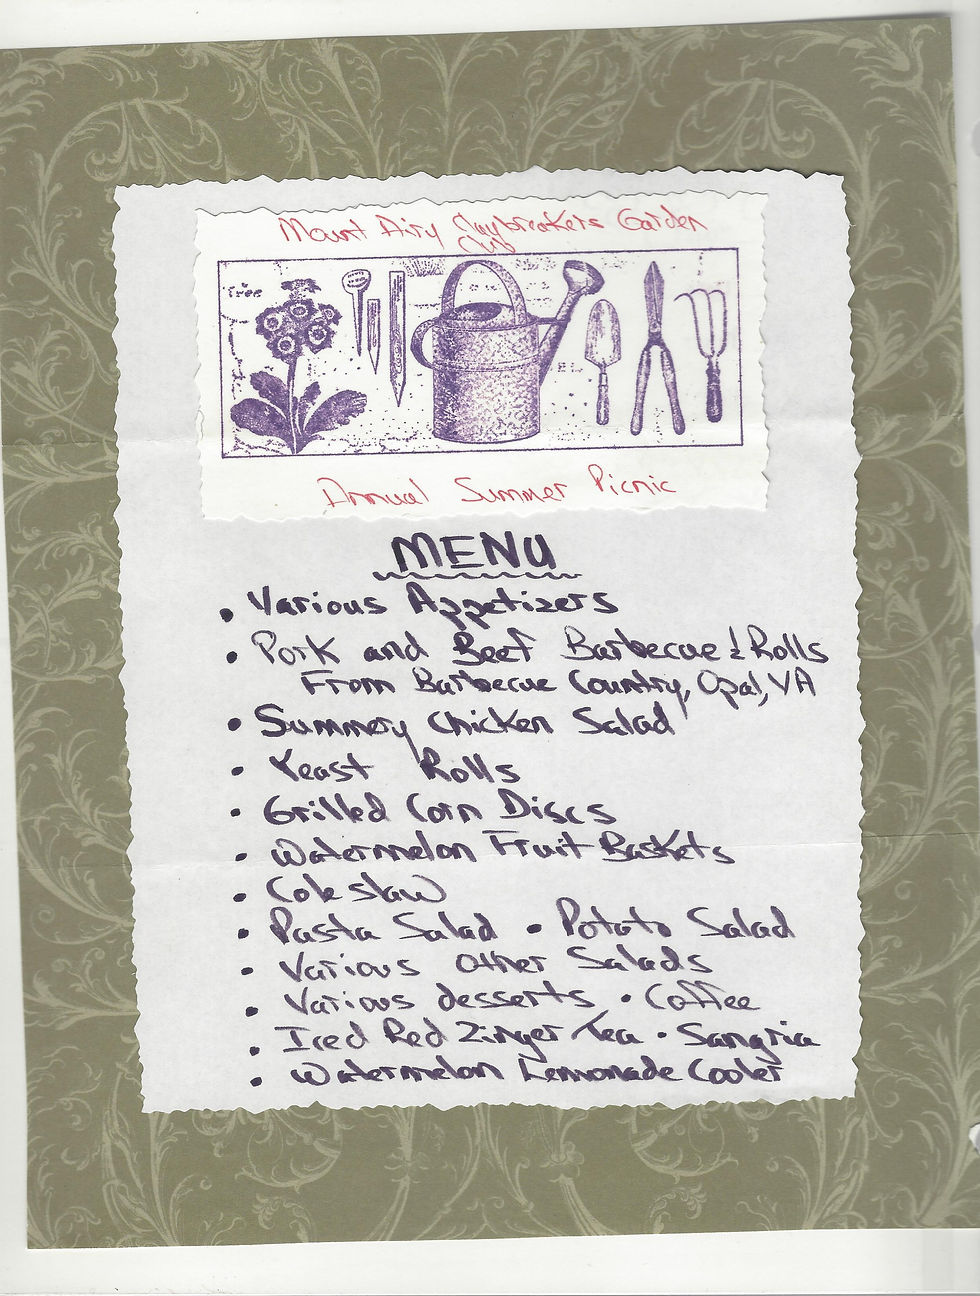 Mount Airy Claybreakers Garden
Club
Tree
Annual Summer Picnic
MENU
• Various Appetizers
• Pork and Beef Barbecue & Rolls
From Barbecue Country, Opal, VA
• Summery Chicken Salad
• Yeast Rolls
• Grilled Corn Discs
• Watermelon Fruit Baskets
• Coleslaw
• Pasta Salad • Potato Salad
• Various other Salads
• Various desserts • Coffee
• Iced Red Zinger Tea • Sangria
• Watermelon Lemonade Cooler